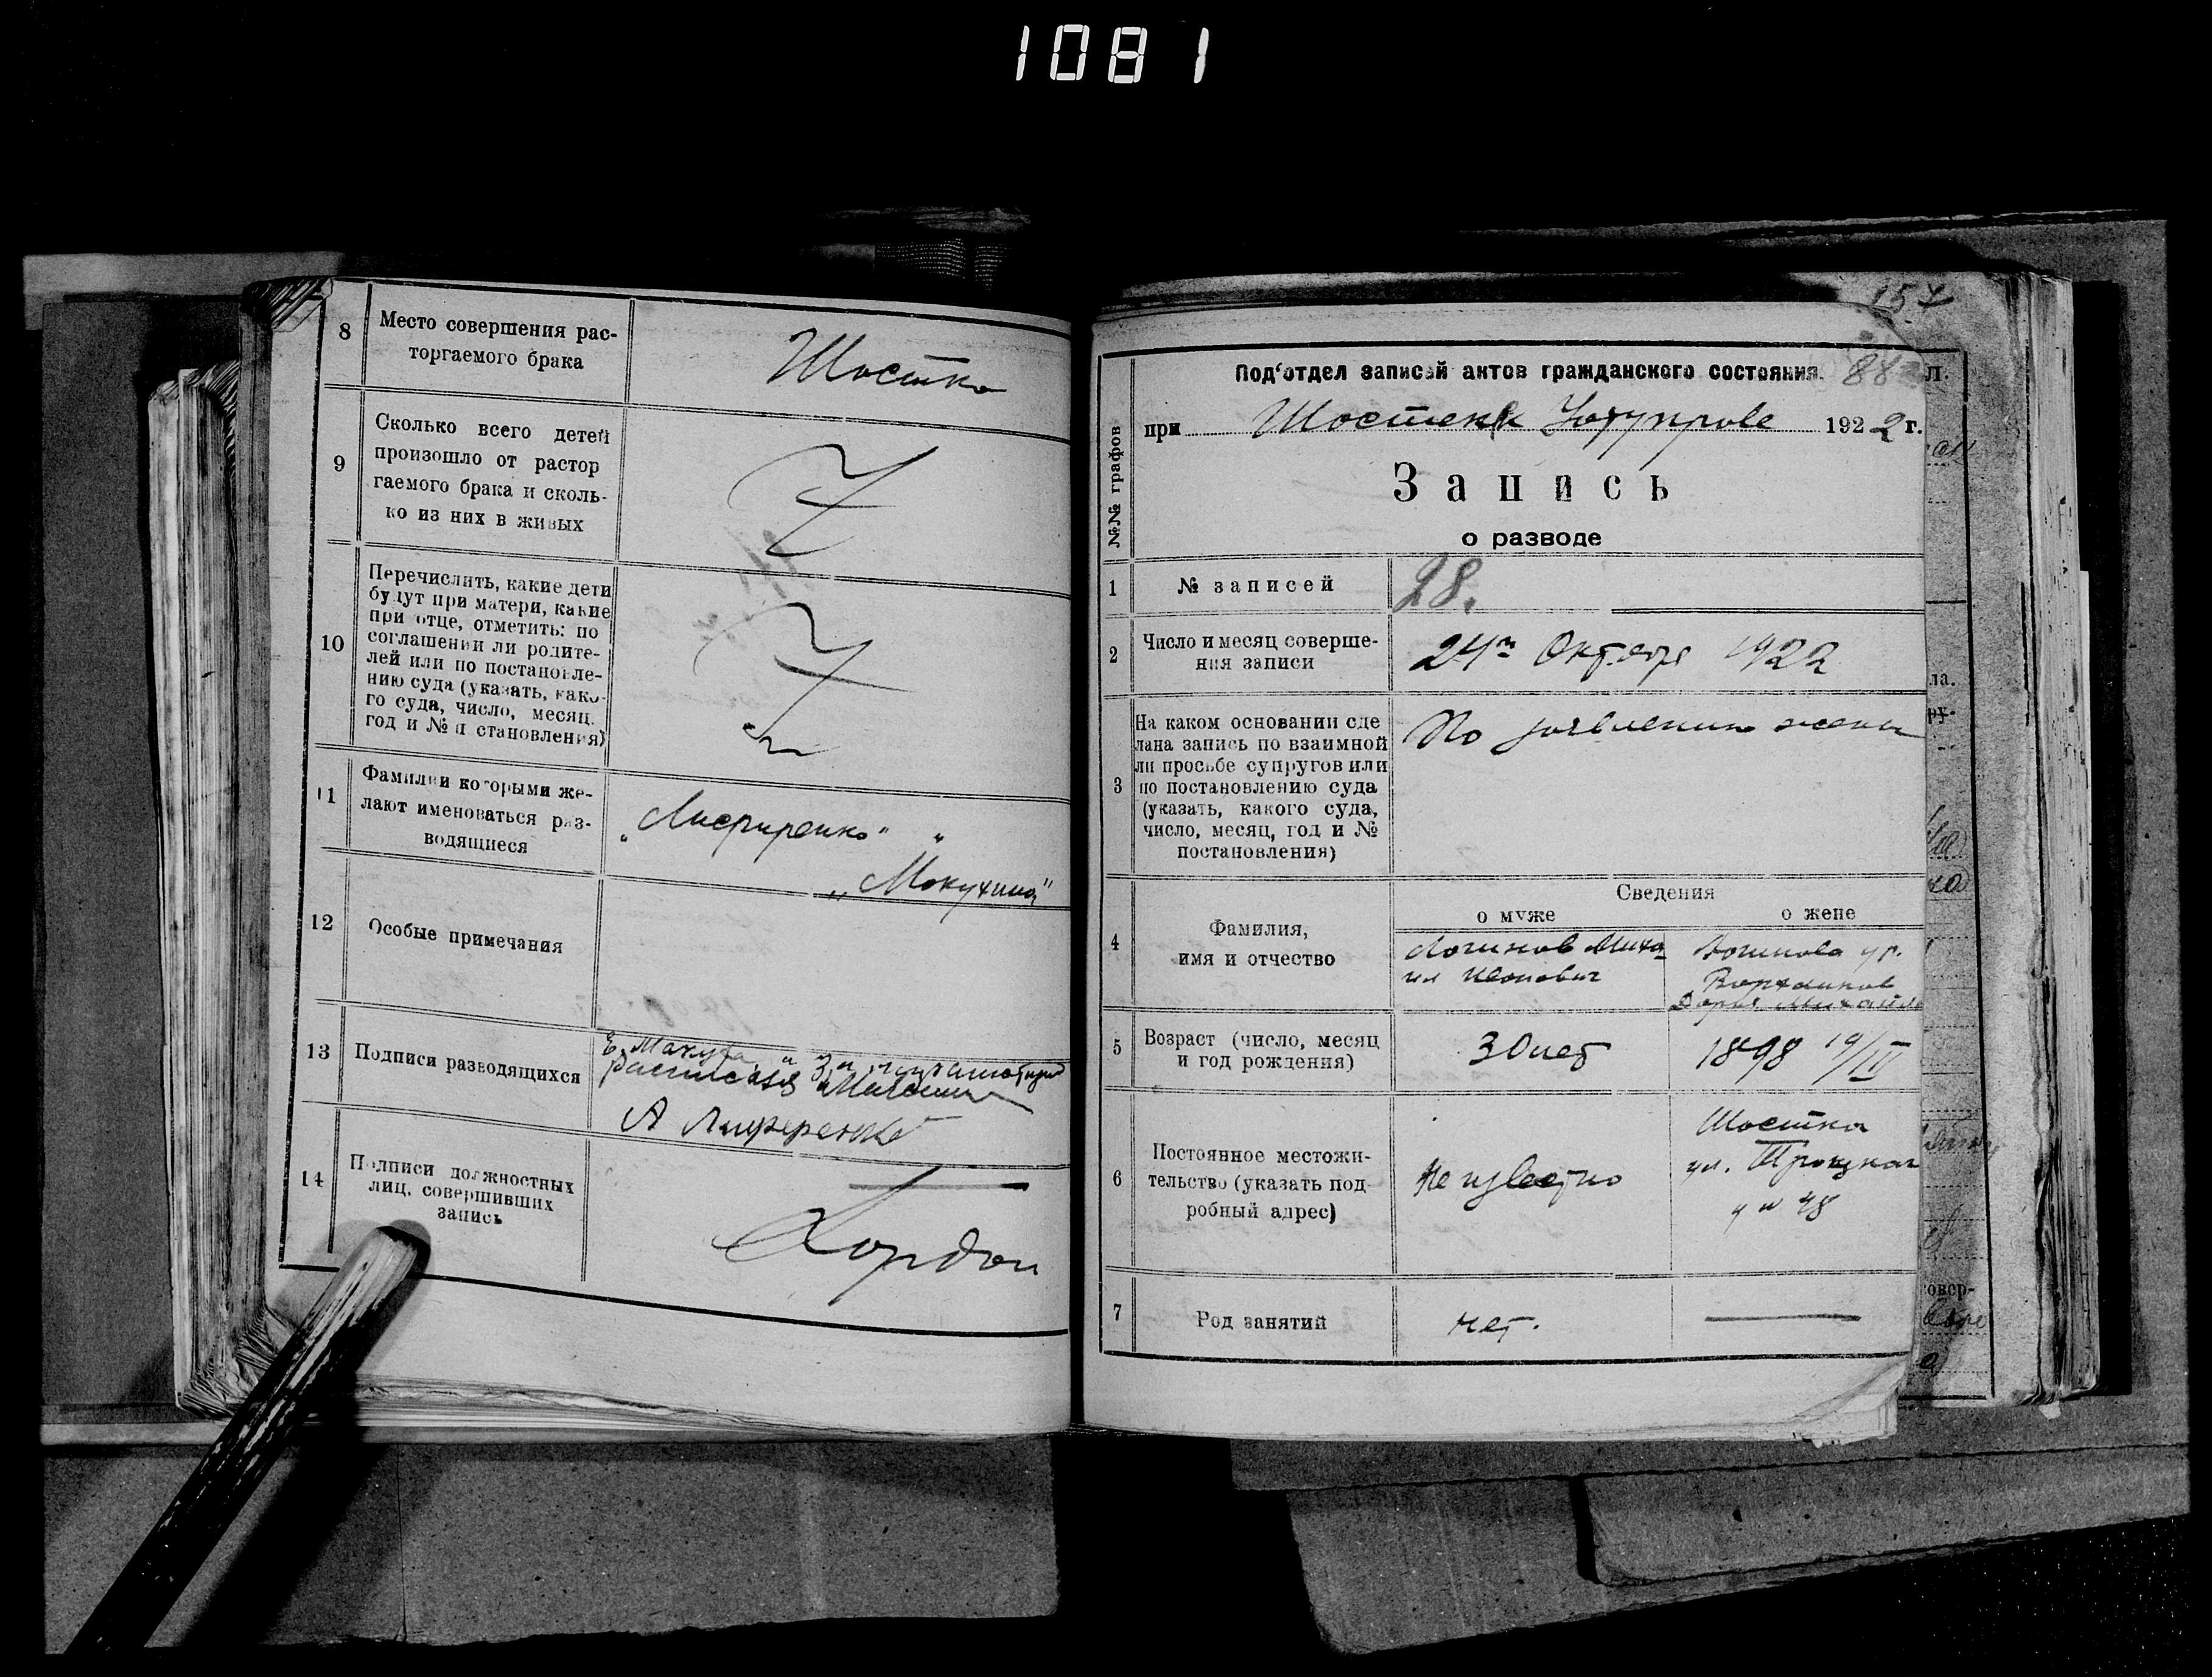 1081
8
Место совершения рас-
торгаемого брака
Шостка
9
Сколько всего детей
произошло от растор
гаемого брака и сколь-
ко из них в живых
10
Перечислить, какие дети
будут при матери, какие
при отце, отметить: по
соглашении ли родите-
лей или по постановле-
нию суда (указать, како-
го суда, число, месяц.
год и № п становления)
11
Фамилии которыми же-
лают именоваться раз-
водящиеся
"
"
12
Особые примечания
13
Подписи разводящихся
Расписался
14
Подписи должностных
лиц, совершивших
запись
Гордон
157
Под‘отдел записей актов гражданского состояния.
88
№№ графов
при Шостенск 1922 г.
Запись
о разводе
1
№ записей
28.
2
Число и месяц соверше-
ния записи
24го Октября 1922
3
На каком основании сде
лана запись по взаимной
ли просьбе супругов или
по постановлению суда
(указать, какого суда,
число, месяц, год и №
постановления)
По заявлению жены
4
Фамилия,
имя и отчество
Сведения
о муже
о жене
Логинов Миха
ил
Логинова ур.
Дарья Михайло
5
Возраст (число, месяц
и год рождения)
30 лет
1898 19/III
6
Постоянное местожи-
тельство (указать под-
робный адрес)
Неизвестно
Шостка
ул. Троцкаго
48
7
Род занятий
нет.
л.
ла.
ру-
овер-